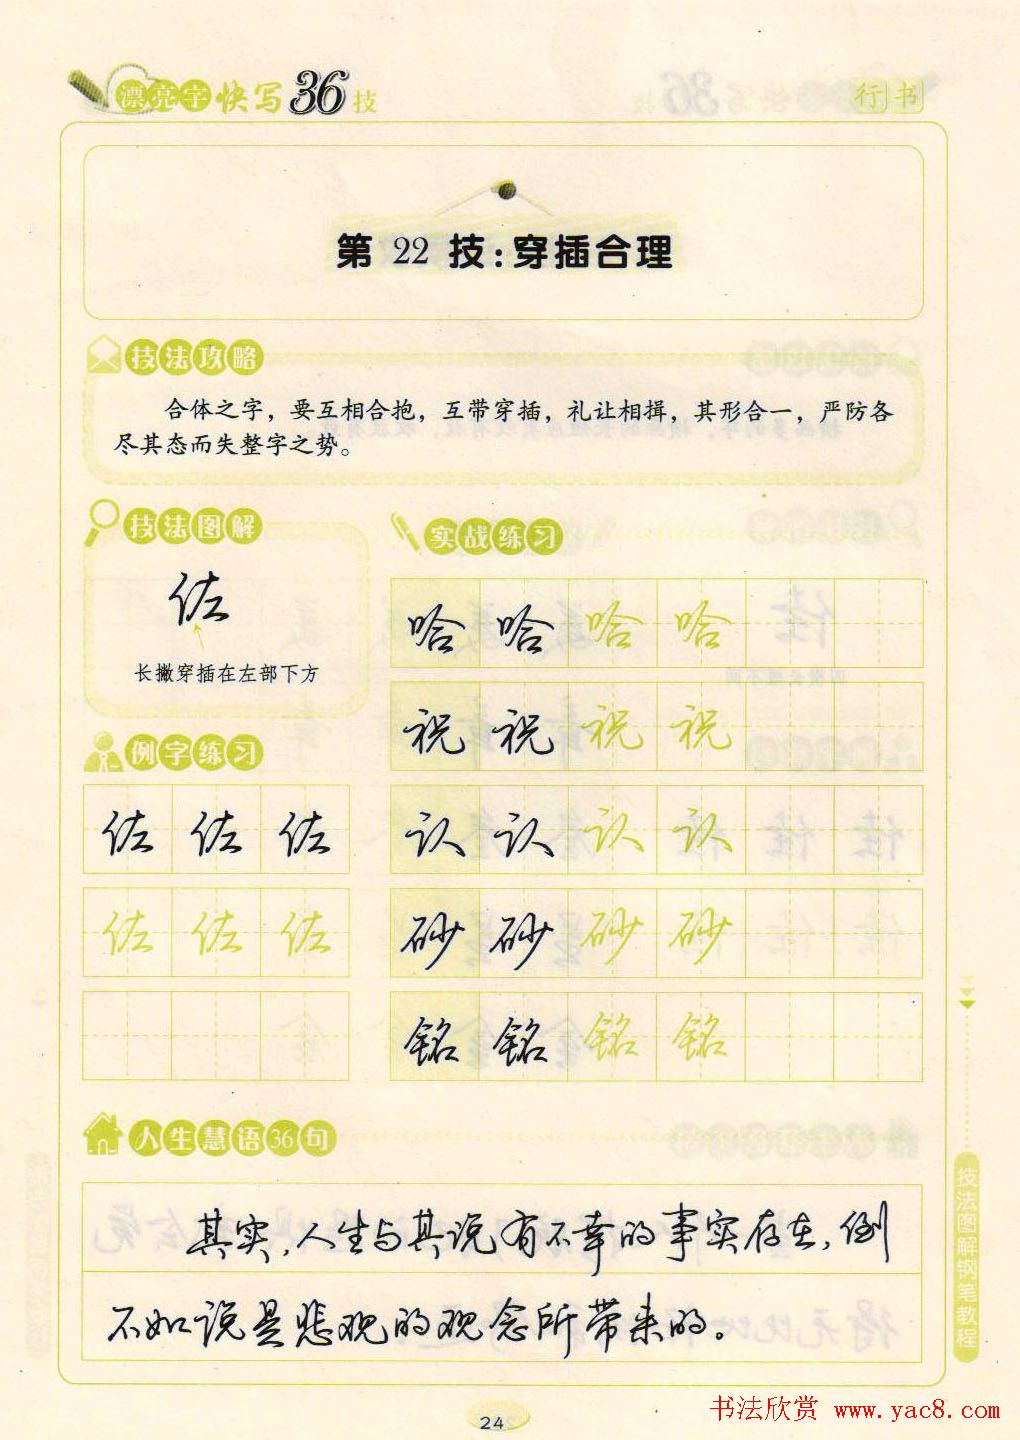 漂亮字快写36技
行书
第 22 技:穿插合理
技法攻略
合体之字，要互相合抱，互带穿插，礼让相揖，其形合一，严防各
尽其态而失整字之势。
技法图解
佐
长撇穿插在左部下方
实战练习
哈 哈 哈 哈
祝 祝 祝 祝
认 认 认 认
砂 砂 砂 砂
铭 铭 铭 铭
例字练习
佐 佐 佐
佐 佐 佐
人生慧语36句
其实，人生与其说有不幸的事实存在，倒
不如说是悲观的观念所带来的。
技法图解钢笔教程
24
书法欣赏 www.yac8.com